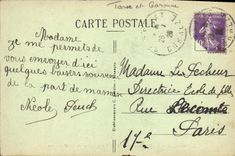 Tarn et Garonne
CARTE POSTALE
Madame
je me permets de
vous envoyer d'ici
quelques baisers souvenir
de la part de maman
Nicole
Madame Les Pecheur
Directrice Ecole de filles
Rue Lecomte
17e Paris